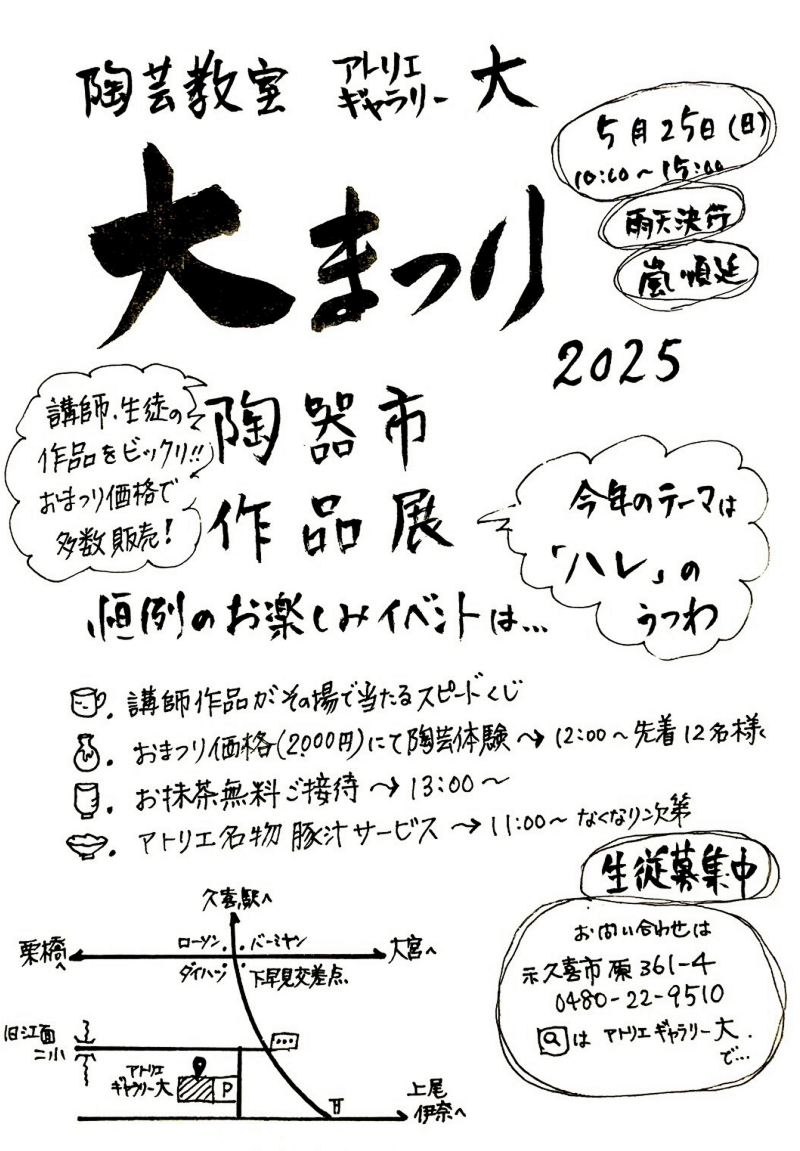 陶芸教室 アトリエ ギャラリー 大
5月25日(日)
10:00～15:00
雨天決行
嵐順延
大まつり
2025
講師、生徒の
作品をビックリ!!
おまつり価格で
多数販売!
陶器市
作品展
今年のテーマは
「ハレ」の
うつわ
恒例のお楽しみイベントは…
講師作品がその場で当たるスピードくじ
おまつり価格(2000円)にて陶芸体験→12:00～先着12名様
お抹茶無料ご接待→13:00～
アトリエ名物 豚汁サービス→11:00～なくなり次第
生徒募集中
お問い合わせは
久喜市原361-4
0480-22-9510
は アトリエギャラリー大.
で…
久喜駅へ
栗橋へ
ローソン
バーミヤン
大宮へ
ダイハツ
下早見交差点
旧江面
二小
アトリエ
ギャラリー大
P
上尾
伊奈へ